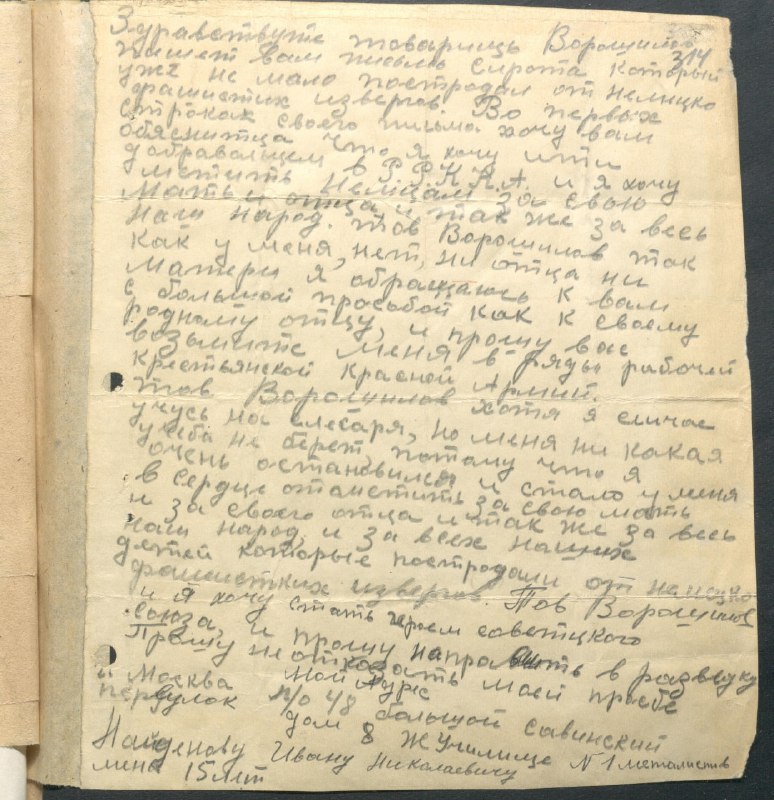 Здравствуте товарищь Ворошилов
314
пишет вам письмо сирота который
уже не мало постродал от немицко
фашистких извергов. Во первых
строках своего письма хочу вам
обяснитца что я хочу итти
добравальцем в Р.Р.К.К.А. и я хочу
мстить Немцам за свою
мать и отца и так же за весь
наш народ. тов Ворошилов так
как у меня, нет, ни отца ни
матери я обращаюсь к вам
с большой прозбой как к своему
родному отцу, и прошу вас
возьмите меня в ряды рабочей
крестьянской Красной Армии.
тов Ворошилов хотя я сичас
учусь на слесаря, но меня ни какая
учёба не берет, потому что я
очень остановился и стало у меня
в сердце отомстить за свою мать
и за своего отца и так же за весь
наш народ, и за всех наших
детей которые постродали от немецко
фашистких извергов. Тов Ворошилов
и я хочу стать героем советцкого
союза, и прошу направить в разведку
Прошу не отказать моей прозбе
мой Адрес
г Москва п/о 48 большой савинский
переулок дом 8 ЖУчилище N 1 металистов
Найденову Ивану Николаевичу
мене 15 лет